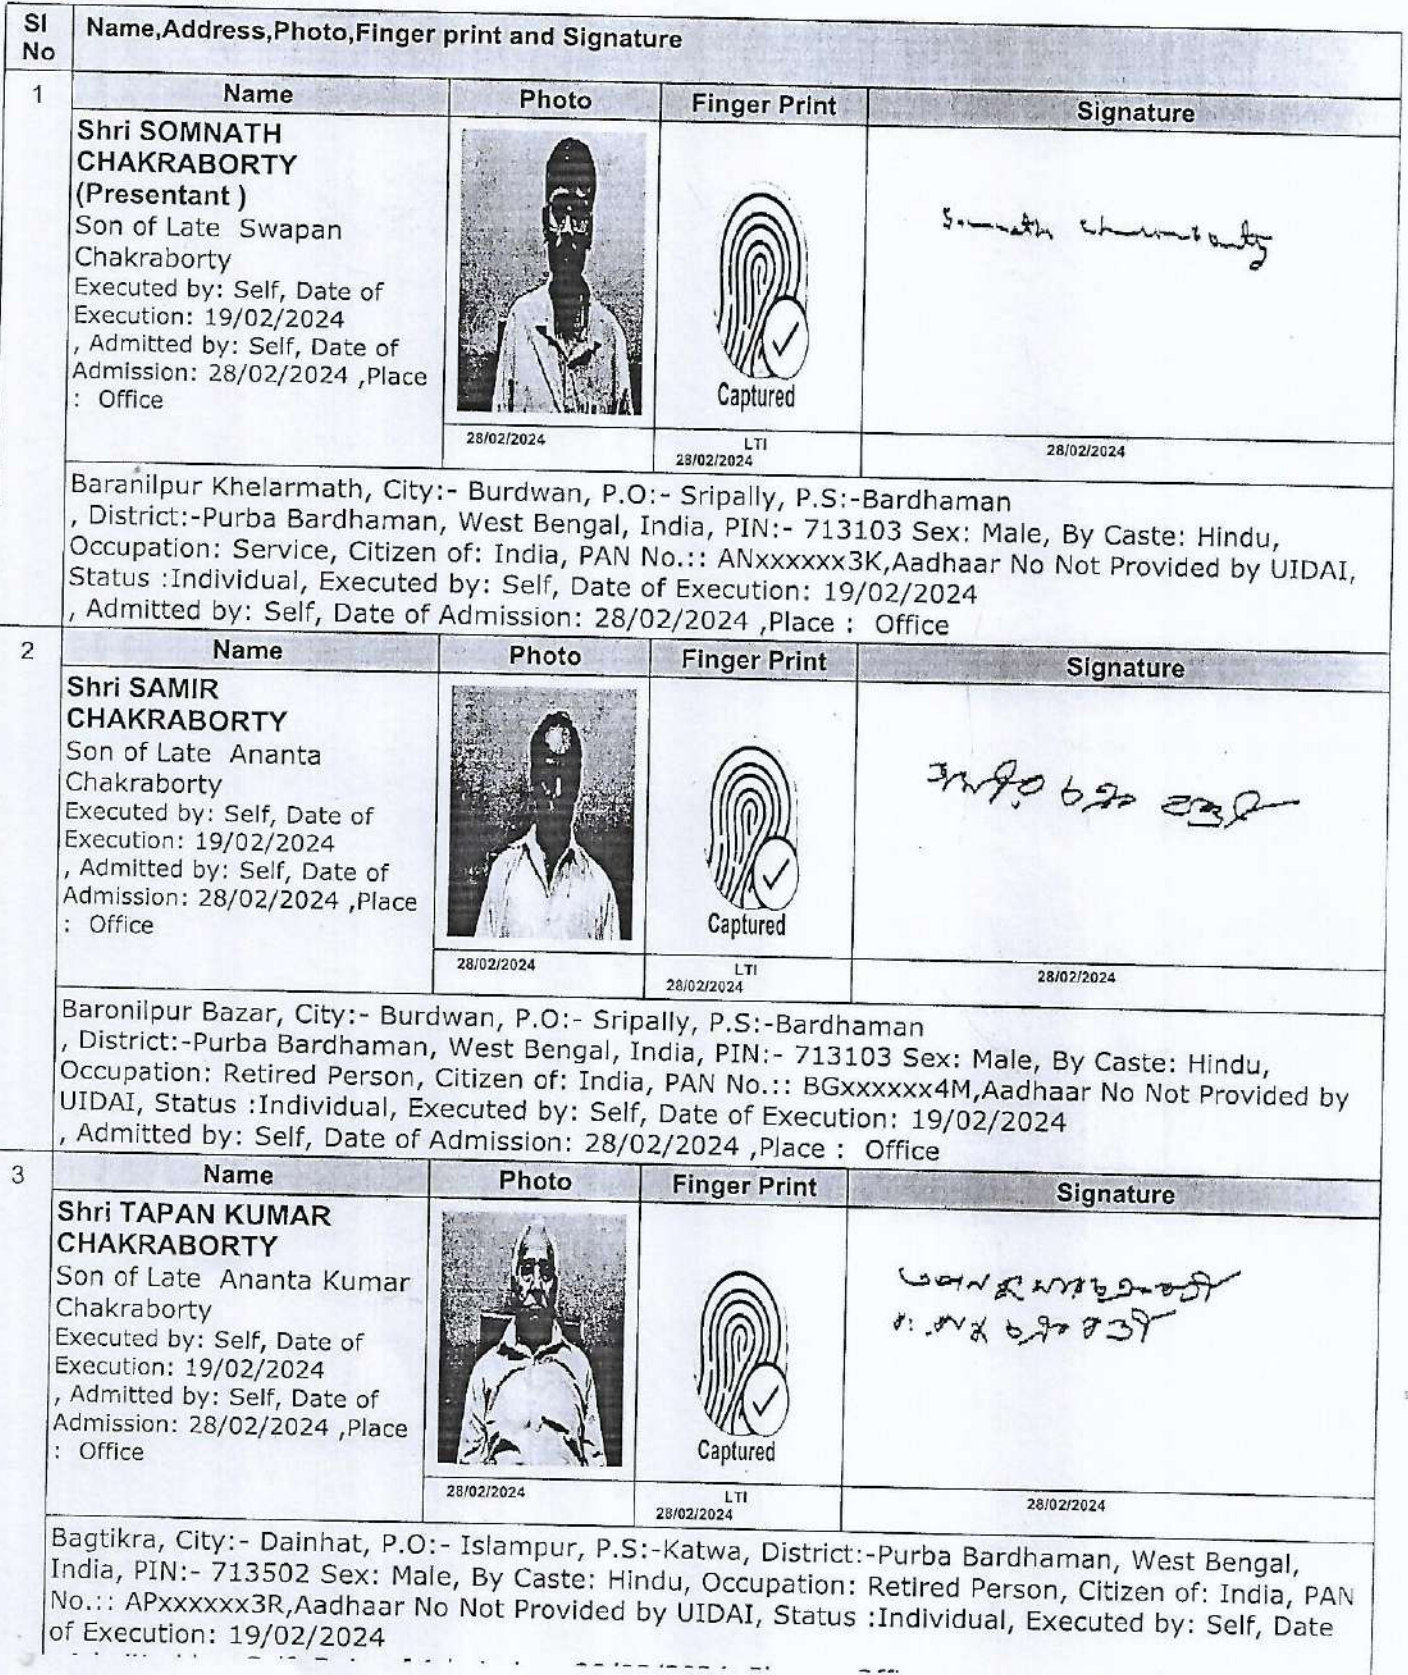 Sl No
Name,Address,Photo,Finger print and Signature
1
Name
Photo
Finger Print
Signature
Shri SOMNATH
CHAKRABORTY
(Presentant )
Son of Late Swapan
Chakraborty
Executed by: Self, Date of
Execution: 19/02/2024
, Admitted by: Self, Date of
Admission: 28/02/2024 ,Place
: Office
Captured
Somnath Chakraborty
28/02/2024
LTI
28/02/2024
28/02/2024
Baranilpur Khelarmath, City:- Burdwan, P.O:- Sripally, P.S:-Bardhaman
, District:-Purba Bardhaman, West Bengal, India, PIN:- 713103 Sex: Male, By Caste: Hindu,
Occupation: Service, Citizen of: India, PAN No.:: ANxxxxxx3K,Aadhaar No Not Provided by UIDAI,
Status :Individual, Executed by: Self, Date of Execution: 19/02/2024
, Admitted by: Self, Date of Admission: 28/02/2024 ,Place : Office
2
Name
Photo
Finger Print
Signature
Shri SAMIR
CHAKRABORTY
Son of Late Ananta
Chakraborty
Executed by: Self, Date of
Execution: 19/02/2024
, Admitted by: Self, Date of
Admission: 28/02/2024 ,Place
: Office
Captured
28/02/2024
LTI
28/02/2024
28/02/2024
Baronilpur Bazar, City:- Burdwan, P.O:- Sripally, P.S:-Bardhaman
, District:-Purba Bardhaman, West Bengal, India, PIN:- 713103 Sex: Male, By Caste: Hindu,
Occupation: Retired Person, Citizen of: India, PAN No.:: BGxxxxxx4M,Aadhaar No Not Provided by
UIDAI, Status :Individual, Executed by: Self, Date of Execution: 19/02/2024
, Admitted by: Self, Date of Admission: 28/02/2024 ,Place : Office
3
Name
Photo
Finger Print
Signature
Shri TAPAN KUMAR
CHAKRABORTY
Son of Late Ananta Kumar
Chakraborty
Executed by: Self, Date of
Execution: 19/02/2024
, Admitted by: Self, Date of
Admission: 28/02/2024 ,Place
: Office
Captured
28/02/2024
LTI
28/02/2024
28/02/2024
Bagtikra, City:- Dainhat, P.O:- Islampur, P.S:-Katwa, District:-Purba Bardhaman, West Bengal,
India, PIN:- 713502 Sex: Male, By Caste: Hindu, Occupation: Retired Person, Citizen of: India, PAN
No.:: APxxxxxx3R,Aadhaar No Not Provided by UIDAI, Status :Individual, Executed by: Self, Date
of Execution: 19/02/2024